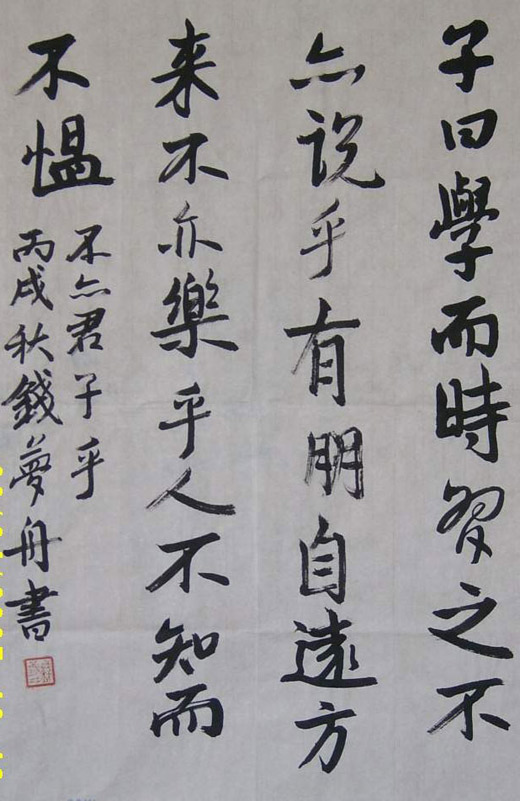 子曰學而時習之不
亦説乎有朋自遠方
来不亦樂乎人不知而
不愠
不亦君子乎
丙戌秋錢夢舟書